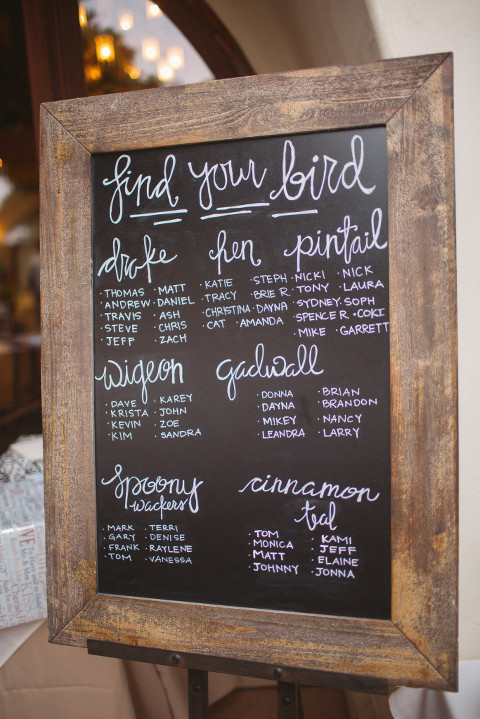 find your bird
drake
· THOMAS · MATT
· ANDREW · DANIEL
· TRAVIS · ASH
· STEVE · CHRIS
· JEFF · ZACH
hen
· KATIE · STEPH
· TRACY · BRIE R.
· CHRISTINA · DAYNA
· CAT · AMANDA
pintail
· NICKI · NICK
· TONY · LAURA
· SYDNEY · SOPH
· SPENCER R · COKI
· MIKE · GARRETT
wigeon
· DAVE · KAREY
· KRISTA · JOHN
· KEVIN · ZOE
· KIM · SANDRA
gadwall
· DONNA · BRIAN
· DAYNA · BRANDON
· MIKEY · NANCY
· LEANDRA · LARRY
Spoony
wackers
· MARK · TERRI
· GARY · DENISE
· FRANK · RAYLENE
· TOM · VANESSA
cinnamon
teal
· TOM · KAMI
· MONICA · JEFF
· MATT · ELAINE
· JOHNNY · JONNA